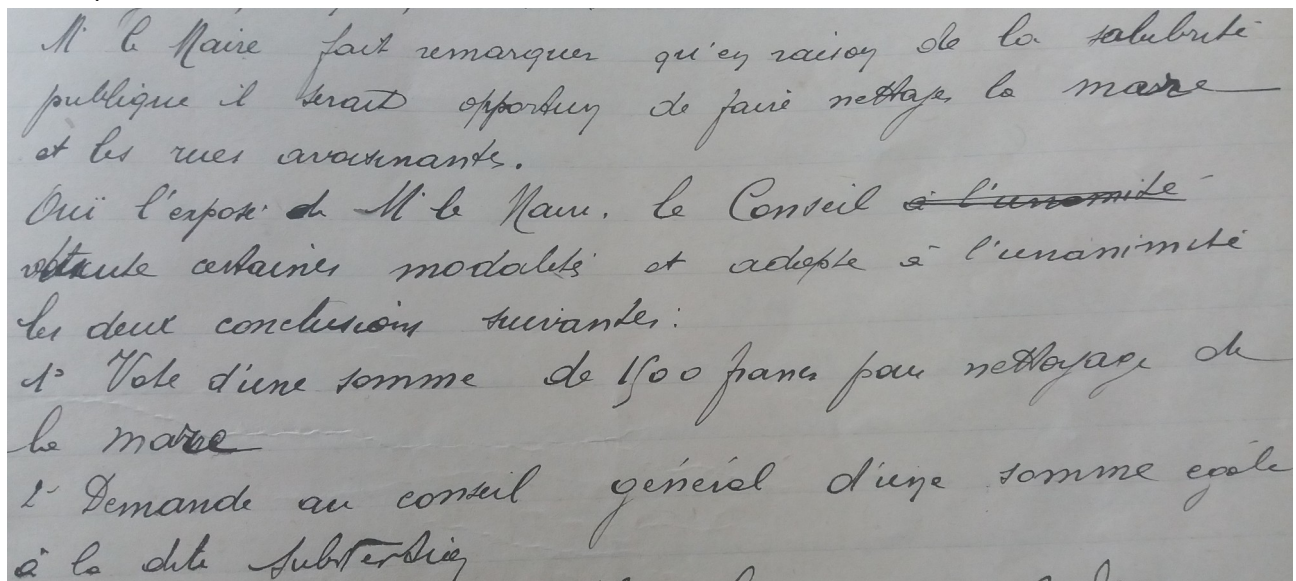 M le Maire fait remarquer qu'en raison de la salubrité
publique il serait opportun de faire nettoyer la mare
et les rues avoisinantes.
Ouï l'exposé de M le Maire, le Conseil à l'unanimité
certaines modalités et adopte à l'unanimité
les deux conclusions suivantes:
1° Vote d'une somme de 1500 francs pour nettoyage de
la mare
2° Demande au conseil général d'une somme égale
à la dite